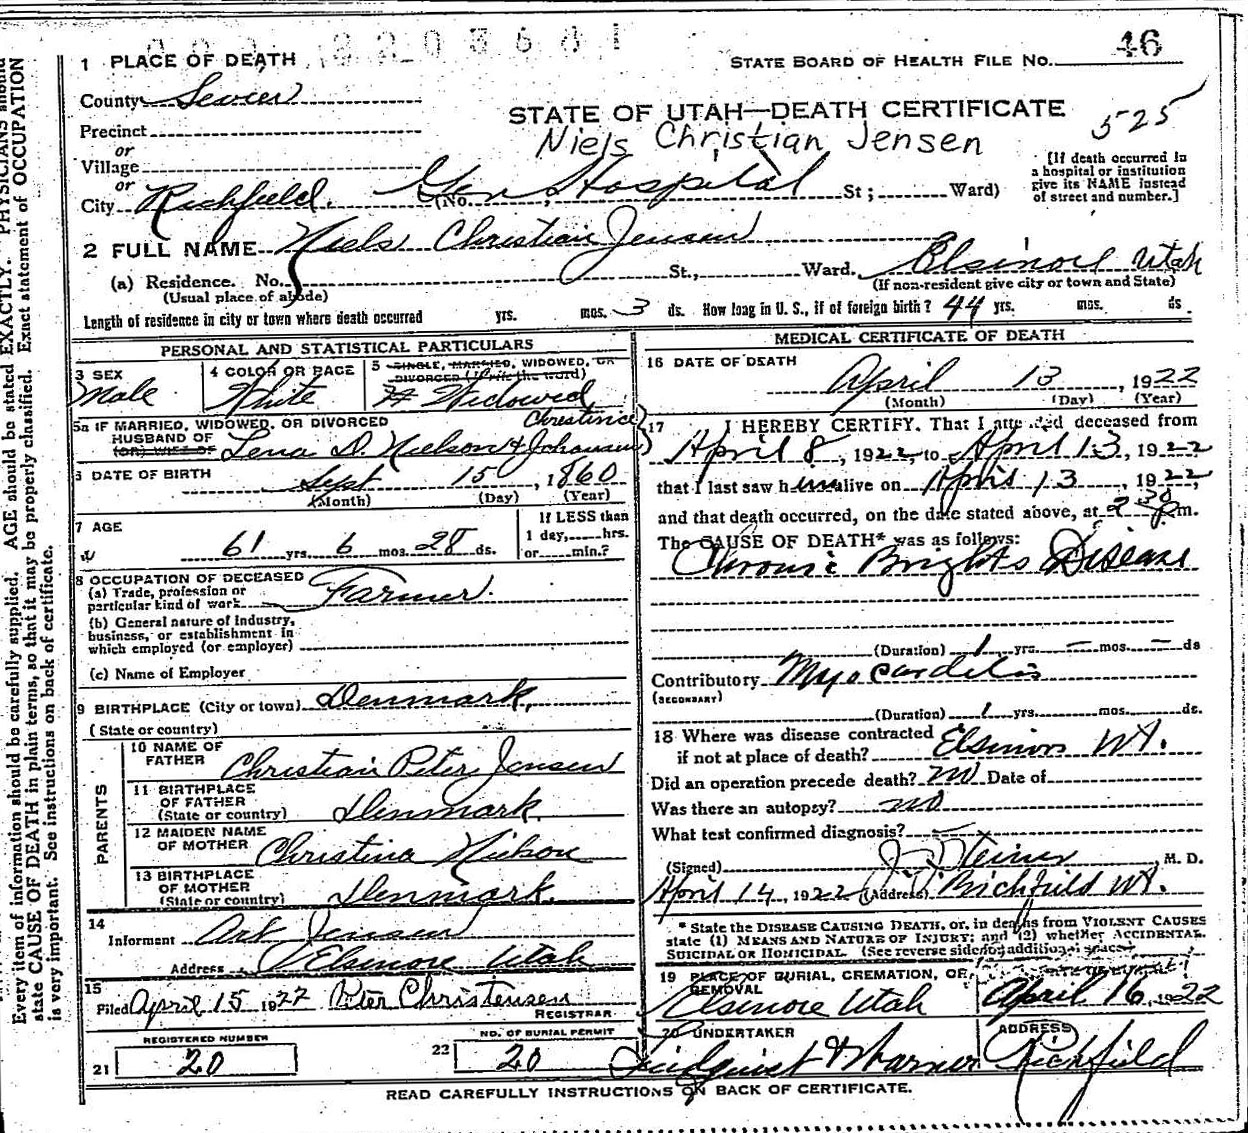 46
STATE BOARD OF HEALTH FILE No.
1 PLACE OF DEATH
County Sevier
STATE OF UTAH—DEATH CERTIFICATE
525
Precinct
Niels Christian Jensen
or
Village
or
City Richfield. (No. Gen Hospital St; Ward)
[If death occurred in
a hospital or institution
give its NAME instead
of street and number.]
2 FULL NAME Niels Christian Jensen
(a) Residence. No. St., Ward. Elsinore Utah
(Usual place of abode) (If non-resident give city or town and State)
Length of residence in city or town where death occurred yrs. mos. 3 ds. How long in U. S., if of foreign birth? 44 yrs. mos. ds
PERSONAL AND STATISTICAL PARTICULARS
3 SEX
Male
4 COLOR OR RACE
White
5 SINGLE, MARRIED, WIDOWED, OR
DIVORCED (Write the word)
Widowed
5a IF MARRIED, WIDOWED, OR DIVORCED
HUSBAND OF
(OR) WIFE OF Lena D. Nielson &
6 DATE OF BIRTH
Sept 15, 1860
(Month) (Day) (Year)
7 AGE
61 yrs. 6 mos. 28 ds.
If LESS than
1 day, hrs.
or min.?
8 OCCUPATION OF DECEASED
(a) Trade, profession or
particular kind of work Farmer.
(b) General nature of Industry,
business, or establishment in
which employed (or employer)
(c) Name of Employer
9 BIRTHPLACE (City or town) Denmark,
(State or country)
PARENTS
10 NAME OF
FATHER Christian Peter Jensen
11 BIRTHPLACE
OF FATHER
(State or country) Denmark.
12 MAIDEN NAME
OF MOTHER Christina Nielson
13 BIRTHPLACE
OF MOTHER
(State or country) Denmark.
14
Informent Art Jensen
Address Elsinore Utah
15
Filed April 15 1922 Peter Christensen
REGISTRAR
REGISTERED NUMBER
21 20
NO. OF BURIAL PERMIT
22 20
MEDICAL CERTIFICATE OF DEATH
16 DATE OF DEATH
April 13, 1922
(Month) (Day) (Year)
17 I HEREBY CERTIFY, That I attended deceased from
April 8, 1922, to April 13, 1922
that I last saw him alive on April 13, 1922,
and that death occurred, on the date stated above, at 2 30 p m.
The CAUSE OF DEATH* was as follows:
Chronic Brights Disease
(Duration) 1 yrs. — mos. — ds
Contributory Myocarditis
(SECONDARY)
(Duration) 1 yrs. mos. ds.
18 Where was disease contracted
if not at place of death? Elsinore Ut.
Did an operation precede death? no Date of
Was there an autopsy? no
What test confirmed diagnosis? —
(Signed) J. J. Steiner, M. D.
April 14, 1922 (Address) Richfield Ut.
* State the DISEASE CAUSING DEATH, or, in deaths from VIOLENT CAUSES
state (1) MEANS AND NATURE OF INJURY; and (2) whether ACCIDENTAL.
SUICIDAL or HOMICIDAL (See reverse side for additional space)
19 PLACE OF BURIAL, CREMATION, OR
REMOVAL
Elsinore Utah
April 16, 1922
20 UNDERTAKER
Lindquist & Warner
ADDRESS
Richfield
READ CAREFULLY INSTRUCTIONS ON BACK OF CERTIFICATE.
Every item of information should be carefully supplied. AGE should be stated EXACTLY. PHYSICIANS should
state CAUSE OF DEATH in plain terms, so that it may be properly classified. Exact statement of OCCUPATION
is very important. See instructions on back of certificate.